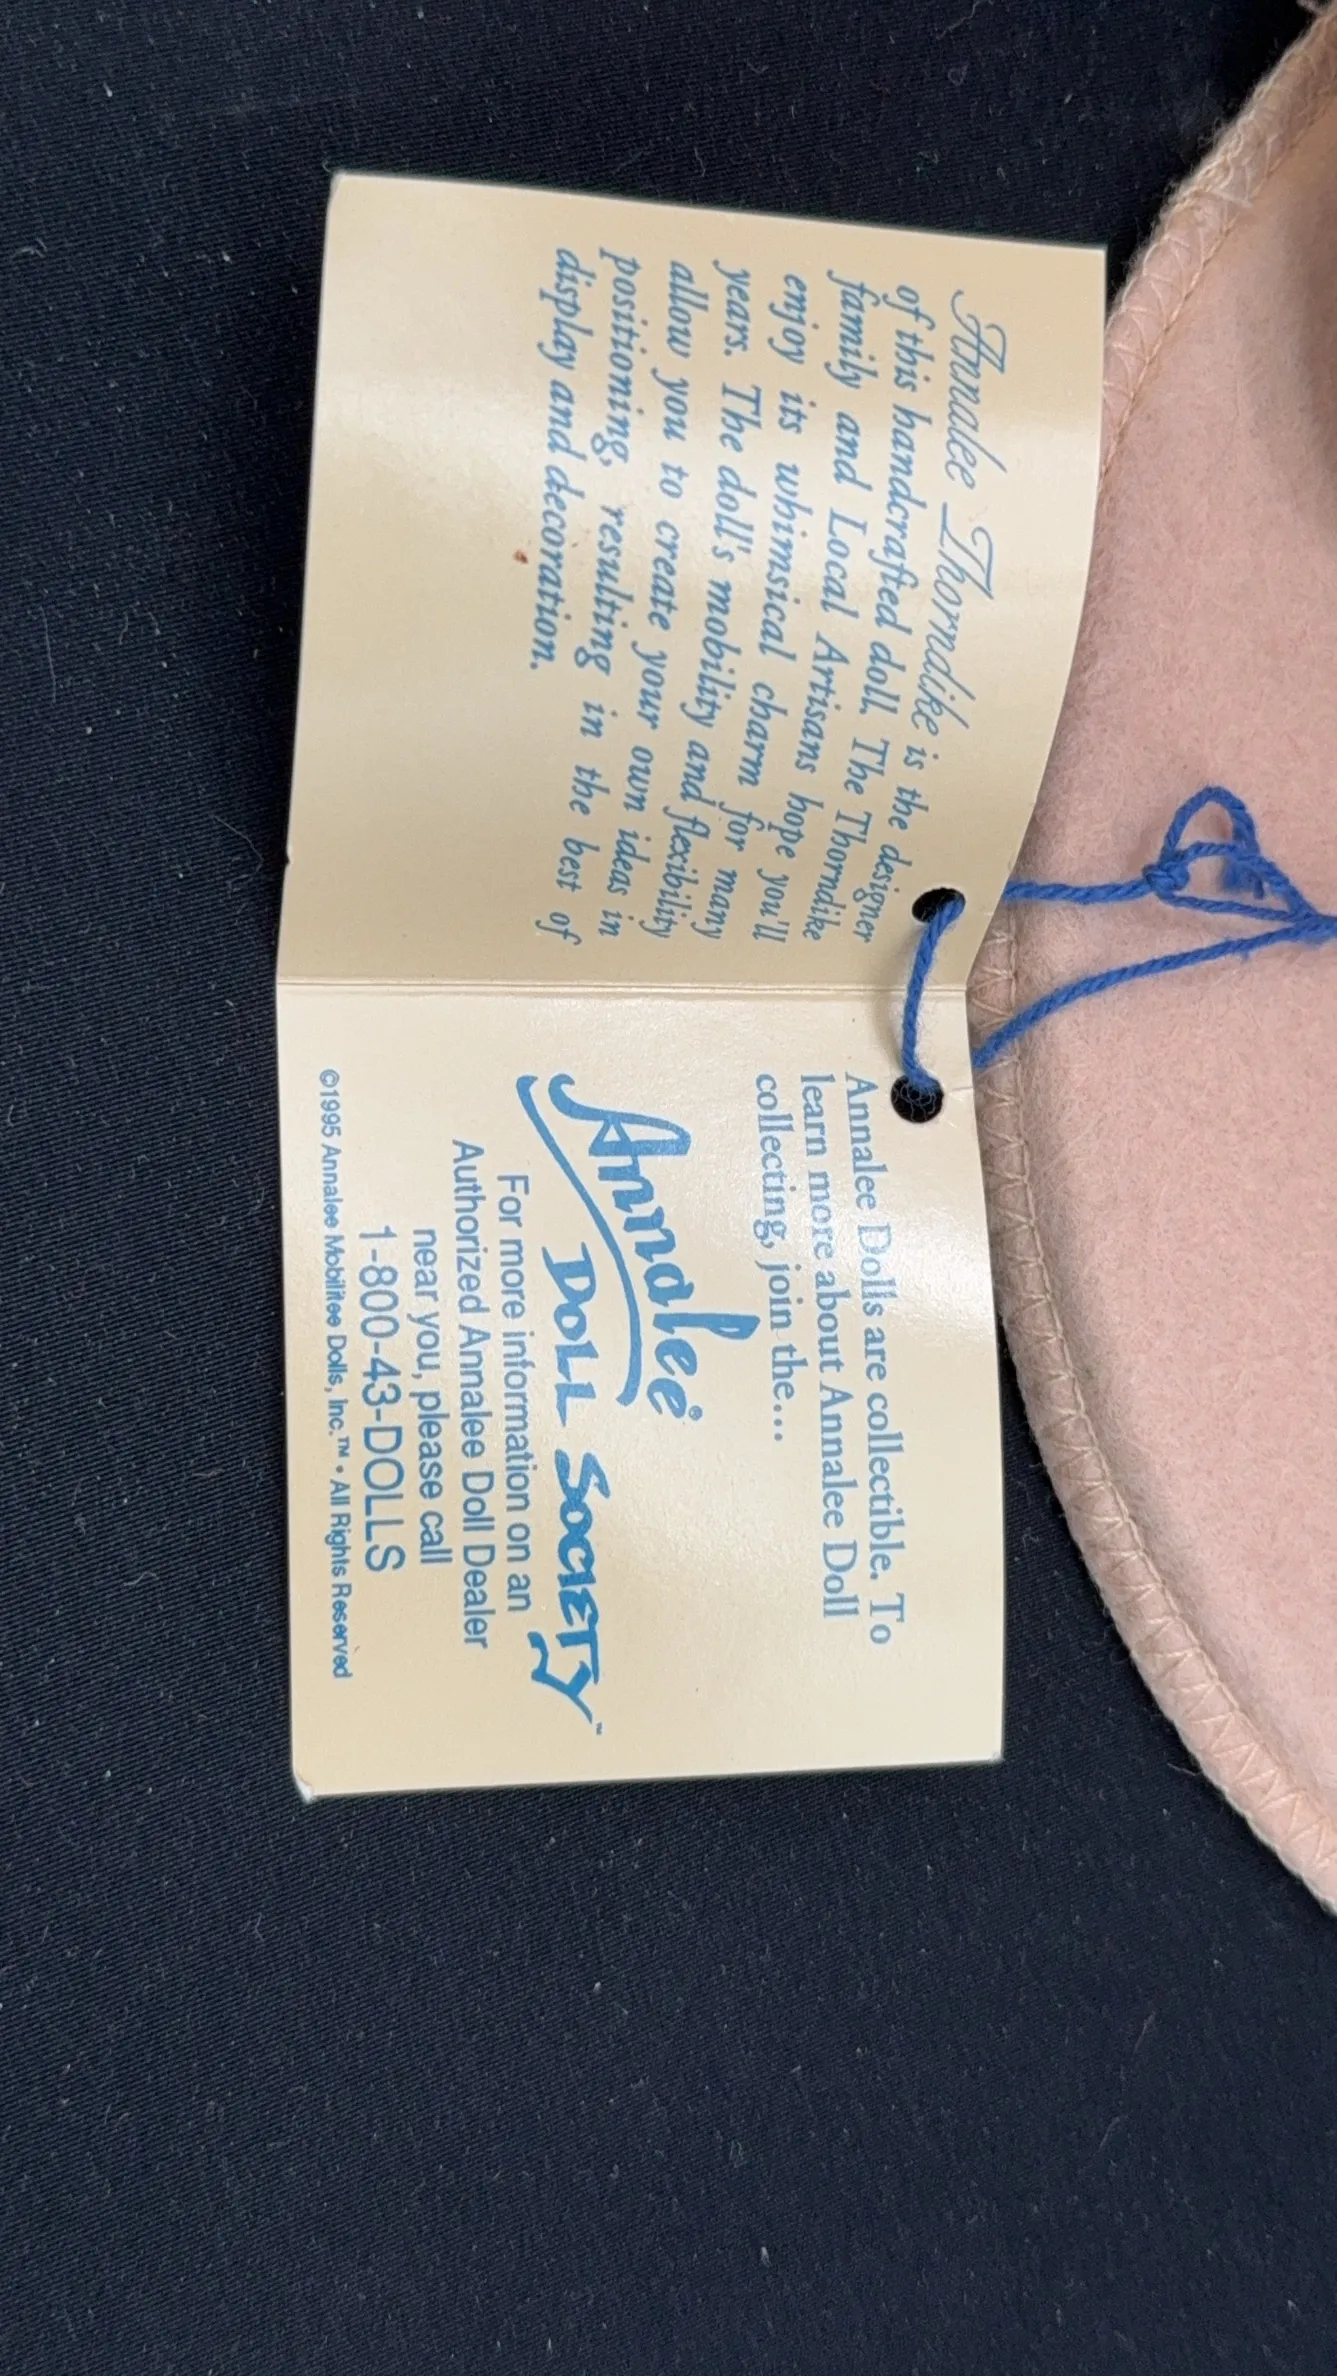 Annalee Thorndike is the designer
of this handcrafted doll. The Thorndike
family and Local Artisans hope you'll
enjoy its whimsical charm for many
years. The doll's mobility and flexibility
allow you to create your own ideas in
positioning, resulting in the best of
display and decoration.
Annalee Dolls are collectible. To
learn more about Annalee Doll
collecting, join the...
Annalee®
DOLL SOCIETY™
For more information on an
Authorized Annalee Doll Dealer
near you, please call
1-800-43-DOLLS
©1995 Annalee Mobilitee Dolls, Inc.™ • All Rights Reserved